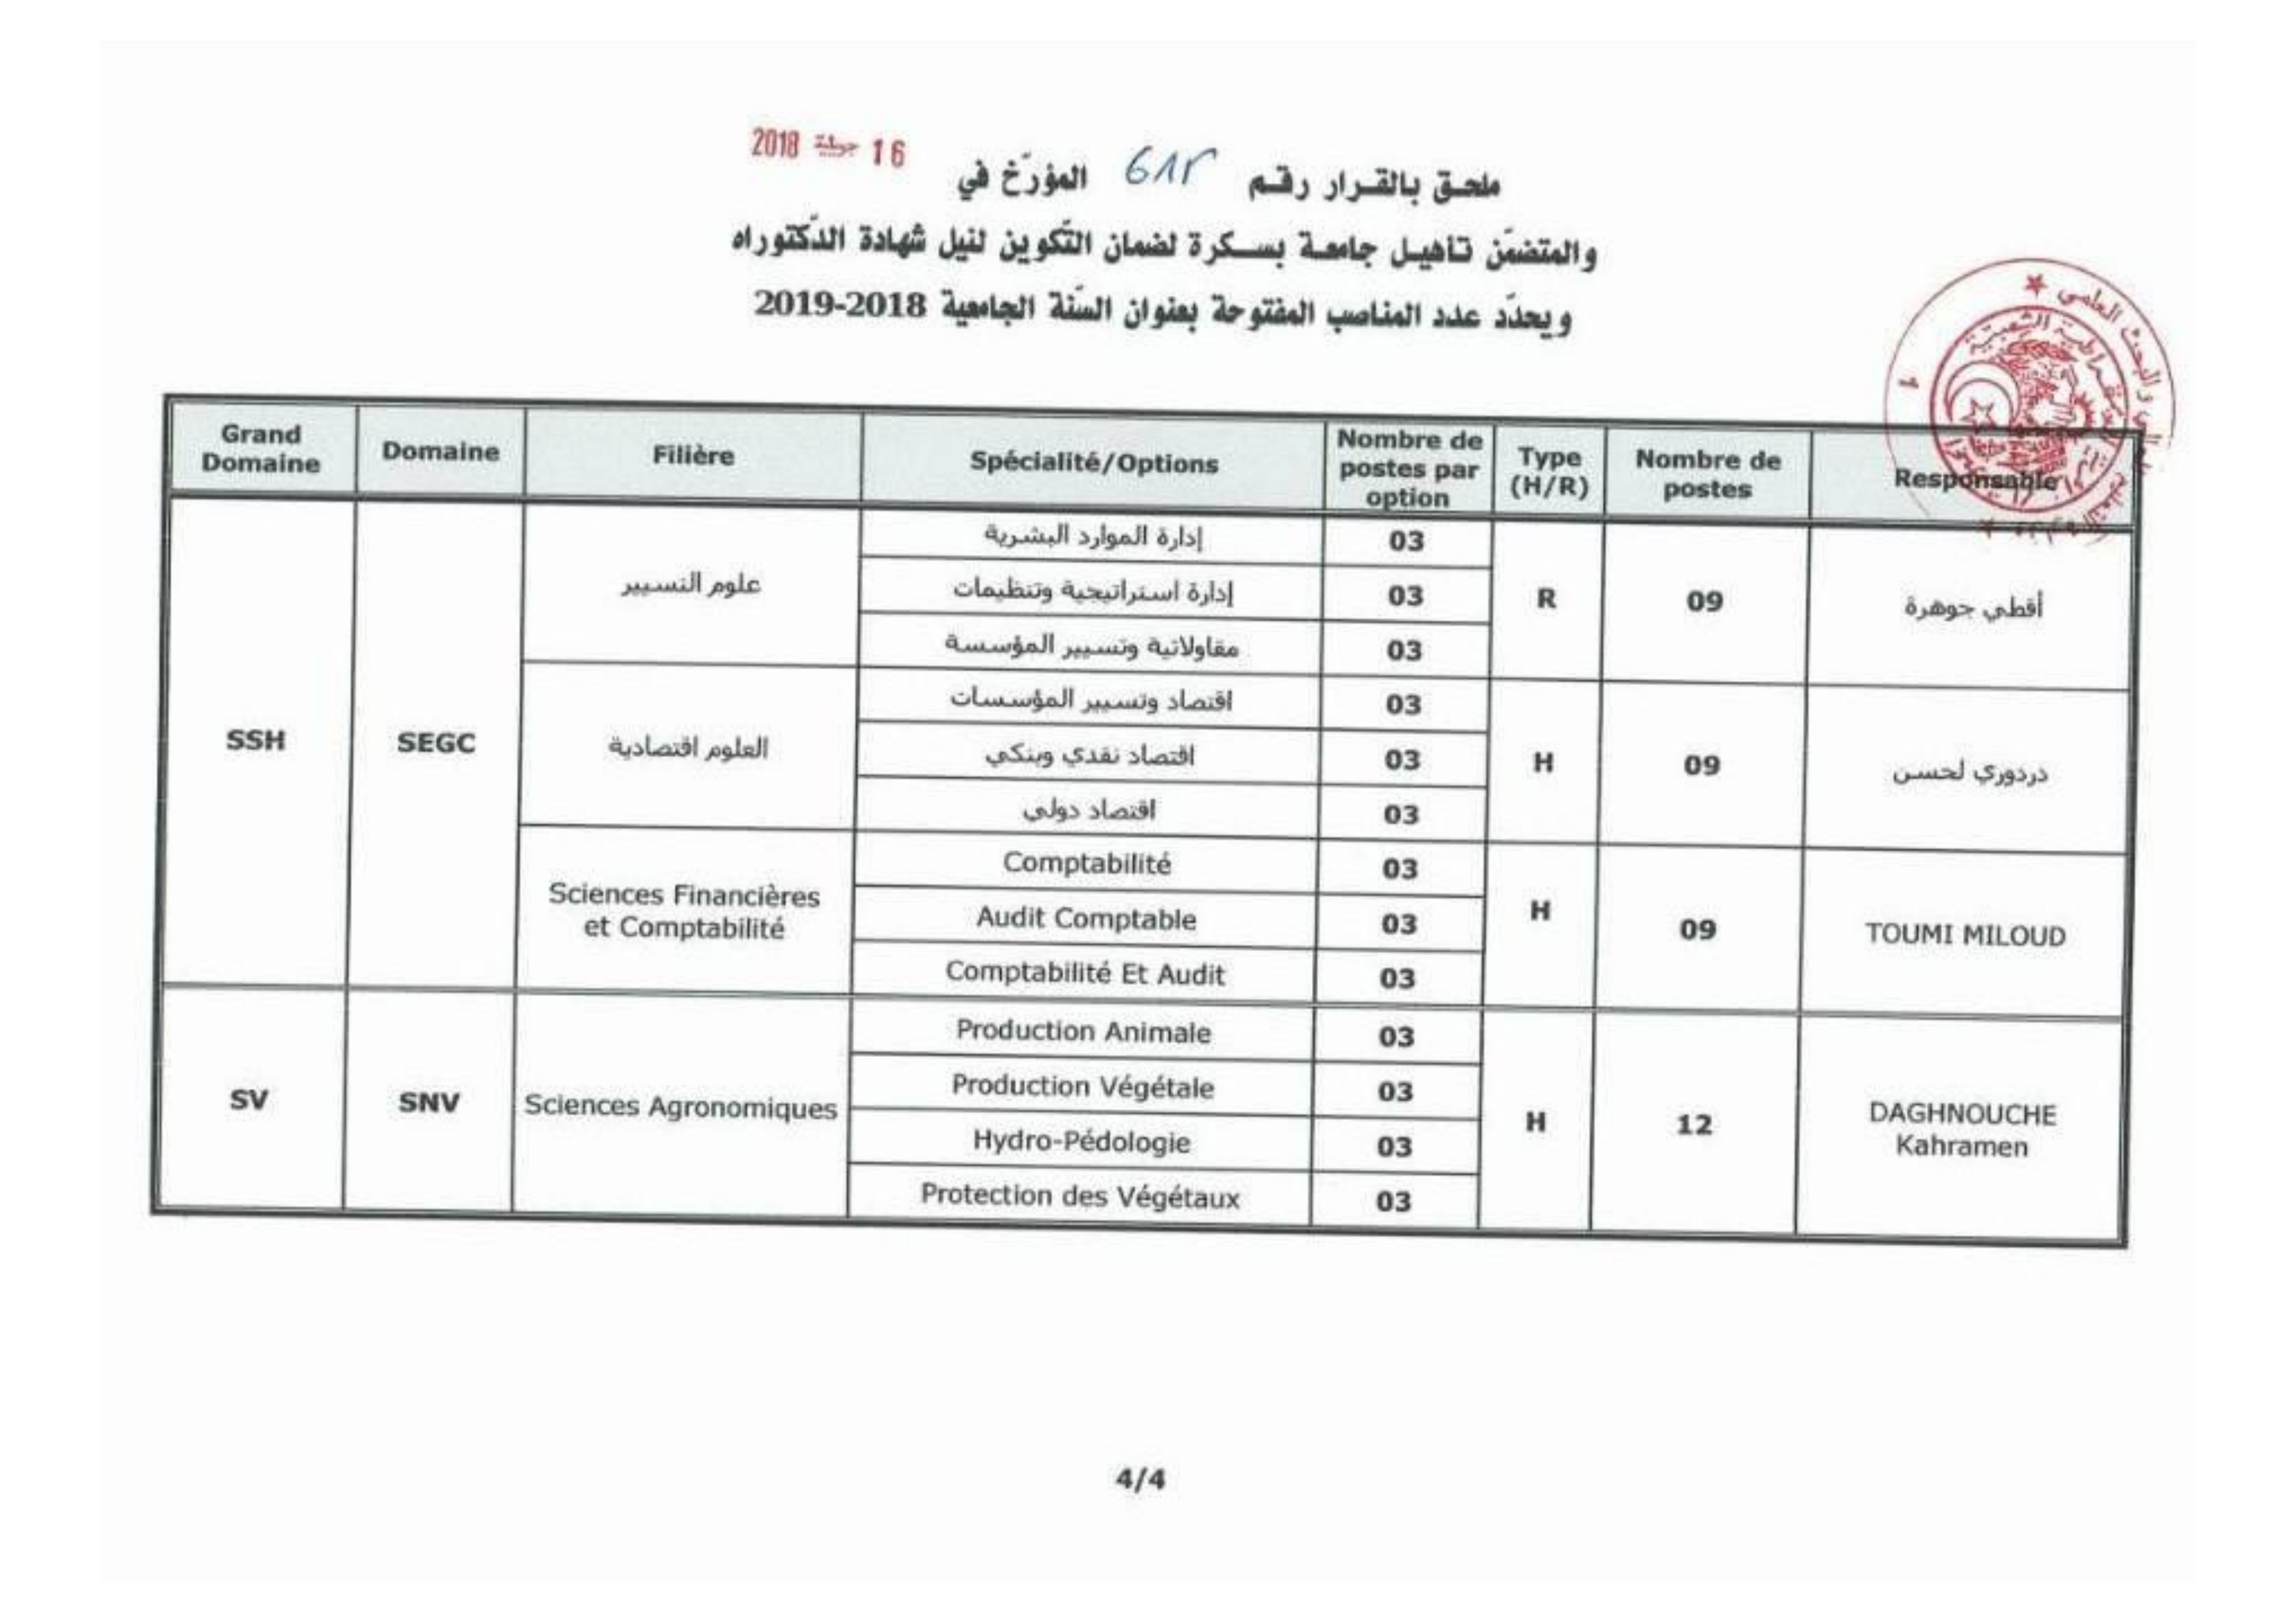 16 جويلية 2018
ملحق بالقرار رقم المؤرّخ في
والمتضمّن تأهيل جامعة بسكرة لضمان التّكوين لنيل شهادة الدّكتوراه
ويحدّد عدد المناصب المفتوحة بعنوان السّنة الجامعية 2018-2019
Grand Domaine
Domaine
Filière
Spécialité/Options
Nombre de postes par option
Type (H/R)
Nombre de postes
Responsable
SSH
SEGC
علوم التسيير
إدارة الموارد البشرية
03
إدارة استراتيجية وتنظيمات
03
مقاولاتية وتسيير المؤسسة
03
R
09
أقطي جوهرة
العلوم اقتصادية
اقتصاد وتسيير المؤسسات
03
اقتصاد نقدي وبنكي
03
اقتصاد دولي
03
H
09
دردوري لحسن
Sciences Financières
et Comptabilité
Comptabilité
03
Audit Comptable
03
Comptabilité Et Audit
03
H
09
TOUMI MILOUD
SV
SNV
Sciences Agronomiques
Production Animale
03
Production Végétale
03
Hydro-Pédologie
03
Protection des Végétaux
03
H
12
DAGHNOUCHE
Kahramen
4/4